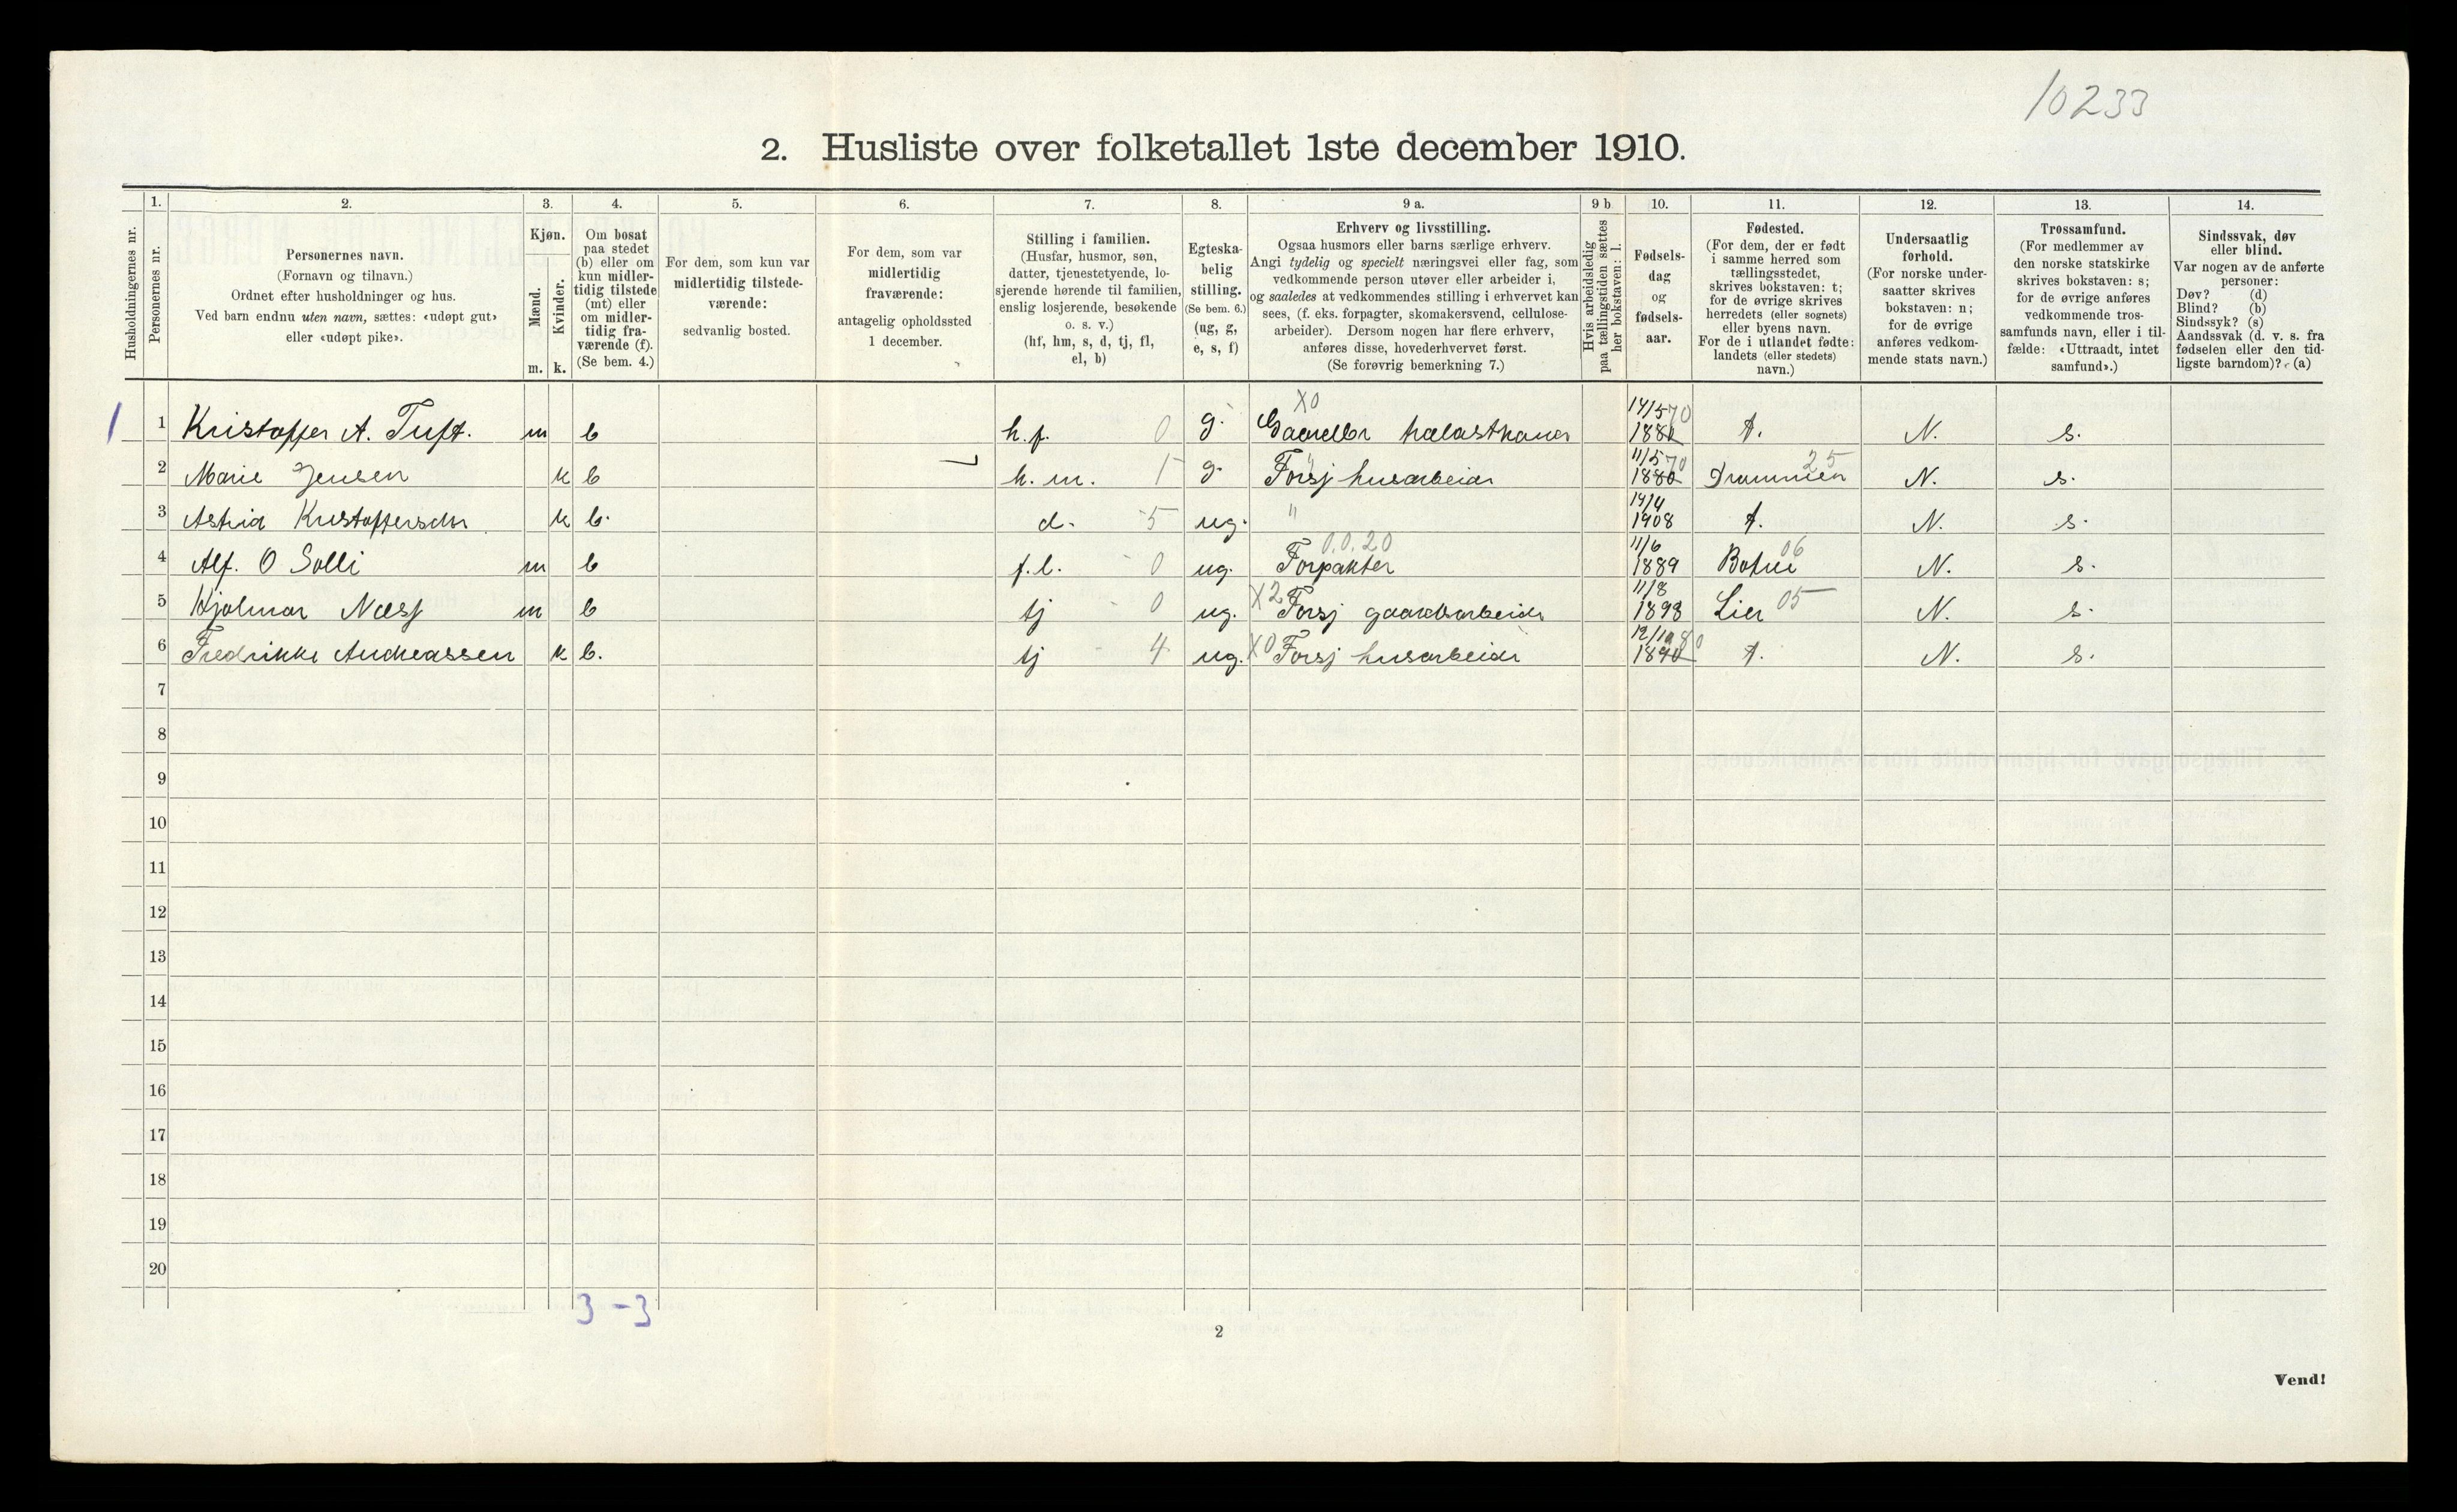 10233
2. Husliste over folketallet 1ste december 1910.
Husholdningernes nr.
1. Personernes nr.
2. Personernes navn.
(Fornavn og tilnavn.)
Ordnet efter husholdninger og hus.
Ved barn endnu uten navn, sættes: «udøpt gut»
eller «udøpt pike».
3. Kjøn.
Mænd. Kvinder.
m. k.
4. Om bosat
paa stedet
(b) eller om
kun midler-
tidig tilstede
(mt) eller
om midler-
tidig fra-
værende (f).
(Se bem. 4.)
5. For dem, som kun var
midlertidig tilstede-
værende:
sedvanlig bosted.
6. For dem, som var
midlertidig
fraværende:
antagelig opholdssted
1 december.
7. Stilling i familien.
(Husfar, husmor, søn,
datter, tjenestetyende, lo-
sjerende hørende til familien,
enslig losjerende, besøkende
o. s. v.)
(hf, hm, s, d, tj, fl,
el, b)
8. Egteska-
belig
stilling.
(Se bem. 6.)
(ug, g,
e, s, f)
9 a. Erhverv og livsstilling.
Ogsaa husmors eller barns særlige erhverv.
Angi tydelig og specielt næringsvei eller fag, som
vedkommende person utøver eller arbeider i,
og saaledes at vedkommendes stilling i erhvervet kan
sees, (f. eks. forpagter, skomakersvend, cellulose-
arbeider). Dersom nogen har flere erhverv,
anføres disse, hovederhvervet først.
(Se forøvrig bemerkning 7.)
9 b Hvis arbeidsledig
paa tællingstiden sættes
her bokstaven: l.
10. Fødsels-
dag
og
fødsels-
aar.
11. Fødested.
(For dem, der er født
i samme herred som
tællingsstedet,
skrives bokstaven: t;
for de øvrige skrives
herredets (eller sognets)
eller byens navn.
For de i utlandet fødte:
landets (eller stedets)
navn.)
12. Undersaatlig
forhold.
(For norske under-
saatter skrives
bokstaven: n;
for de øvrige
anføres vedkom-
mende stats navn.)
13. Trossamfund.
(For medlemmer av
den norske statskirke
skrives bokstaven: s;
for de øvrige anføres
vedkommende tros-
samfunds navn, eller i til-
fælde: «Uttraadt, intet
samfund».)
14. Sindssvak, døv
eller blind.
Var nogen av de anførte
personer:
Døv? (d)
Blind? (b)
Sindssyk? (s)
Aandssvak (d. v. s. fra
fødselen eller den tid-
ligste barndom)? (a)
1 1 Kristoffer A. Tuft. m b h.f. 0 g. X0 14/5 70 t. N. s.
2 Marie Jensen k b h. m. 1 g. Forsj husarbeide 11/5 70 1880 Drammen 25 N. s.
3 Astrid k b. d. 5 ug. " 14/4 1908 t. N. s.
4 Alf. O Solli m b f.l. 0 ug. 0.0.20 Forpakter 11/6 1889 06 N. s.
5 Hjalmar Næss m b tj 0 ug. X2 Forsj gaardsarbeide 11/8 1898 Lier 05 N. s.
6 Fredrikke Andreassen k b. tj 4 ug. X0 Forsj husarbeide t. N. s.
7
8
9
10
11
12
13
14
15
16
17
18
19
20
3 - 3
2
Vend!